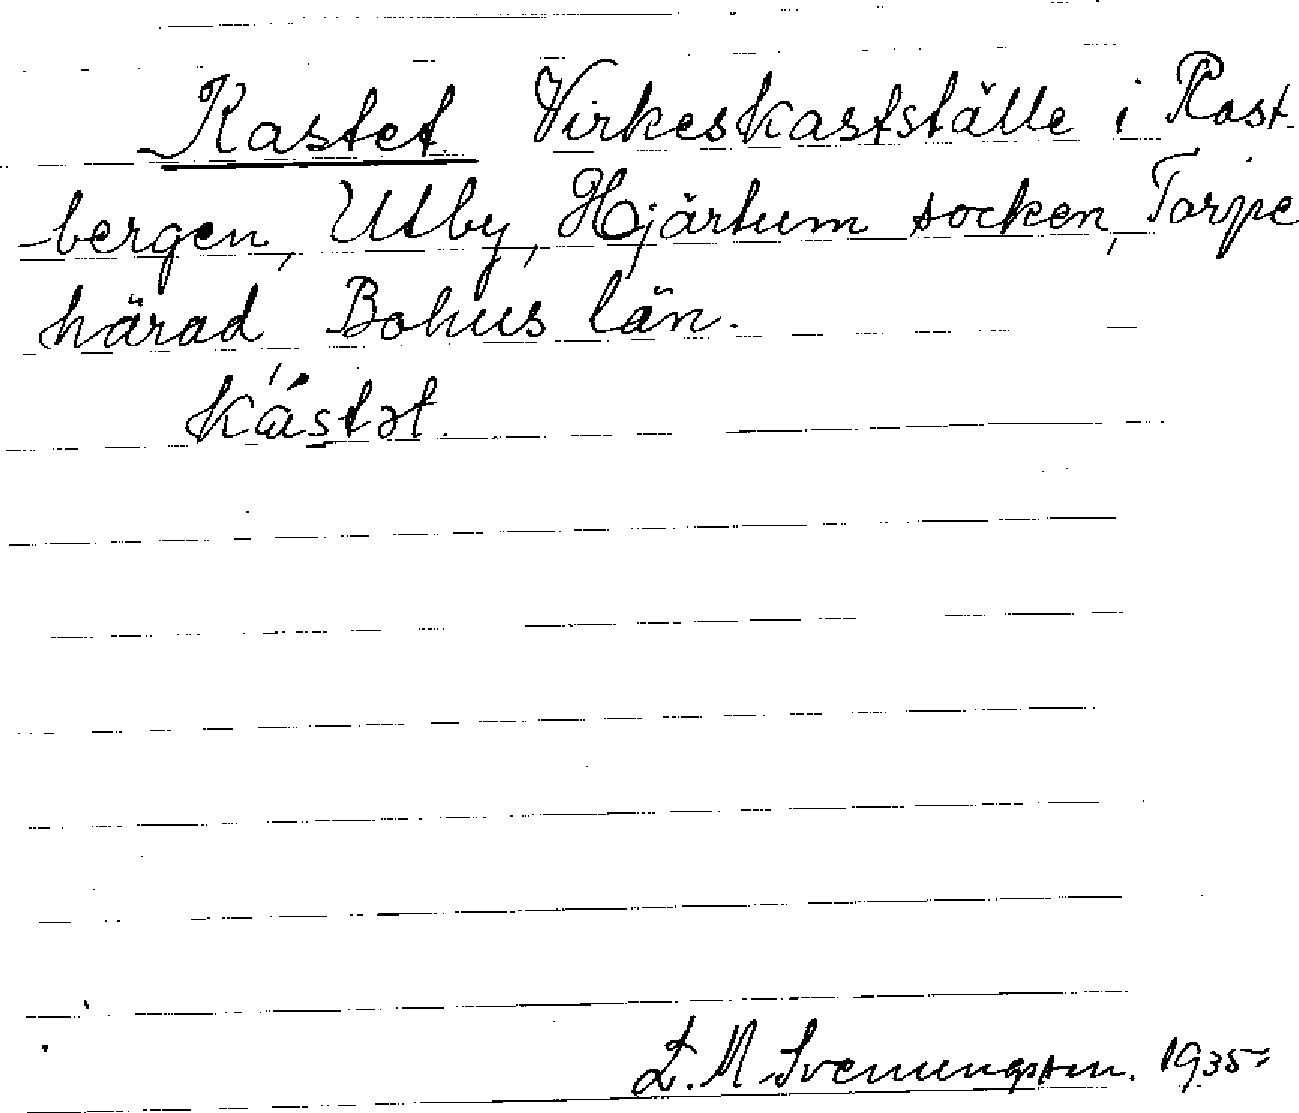 Kastet Virkeskastställe i Rost-
bergen, Utby, Hjärtum socken, Torpe
härad Bohus län.
kástət.
L. M. Svenungsson. 1935